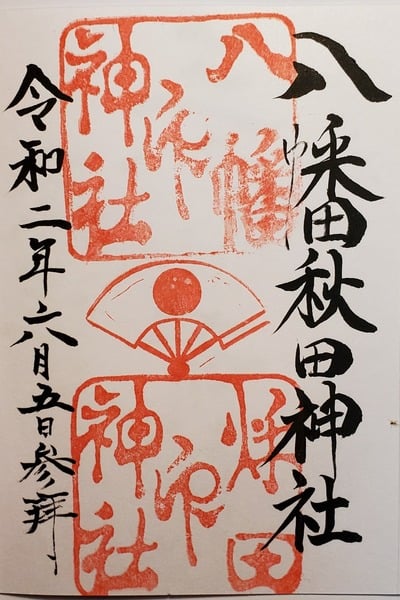 八幡秋田神社
八幡神社印
秋田神社印
令和二年六月五日参拝